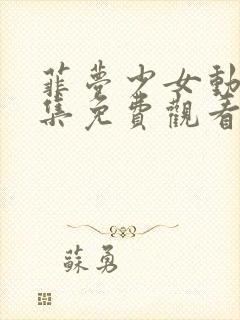 韮夢少女動
集免費觀看
蘇勇